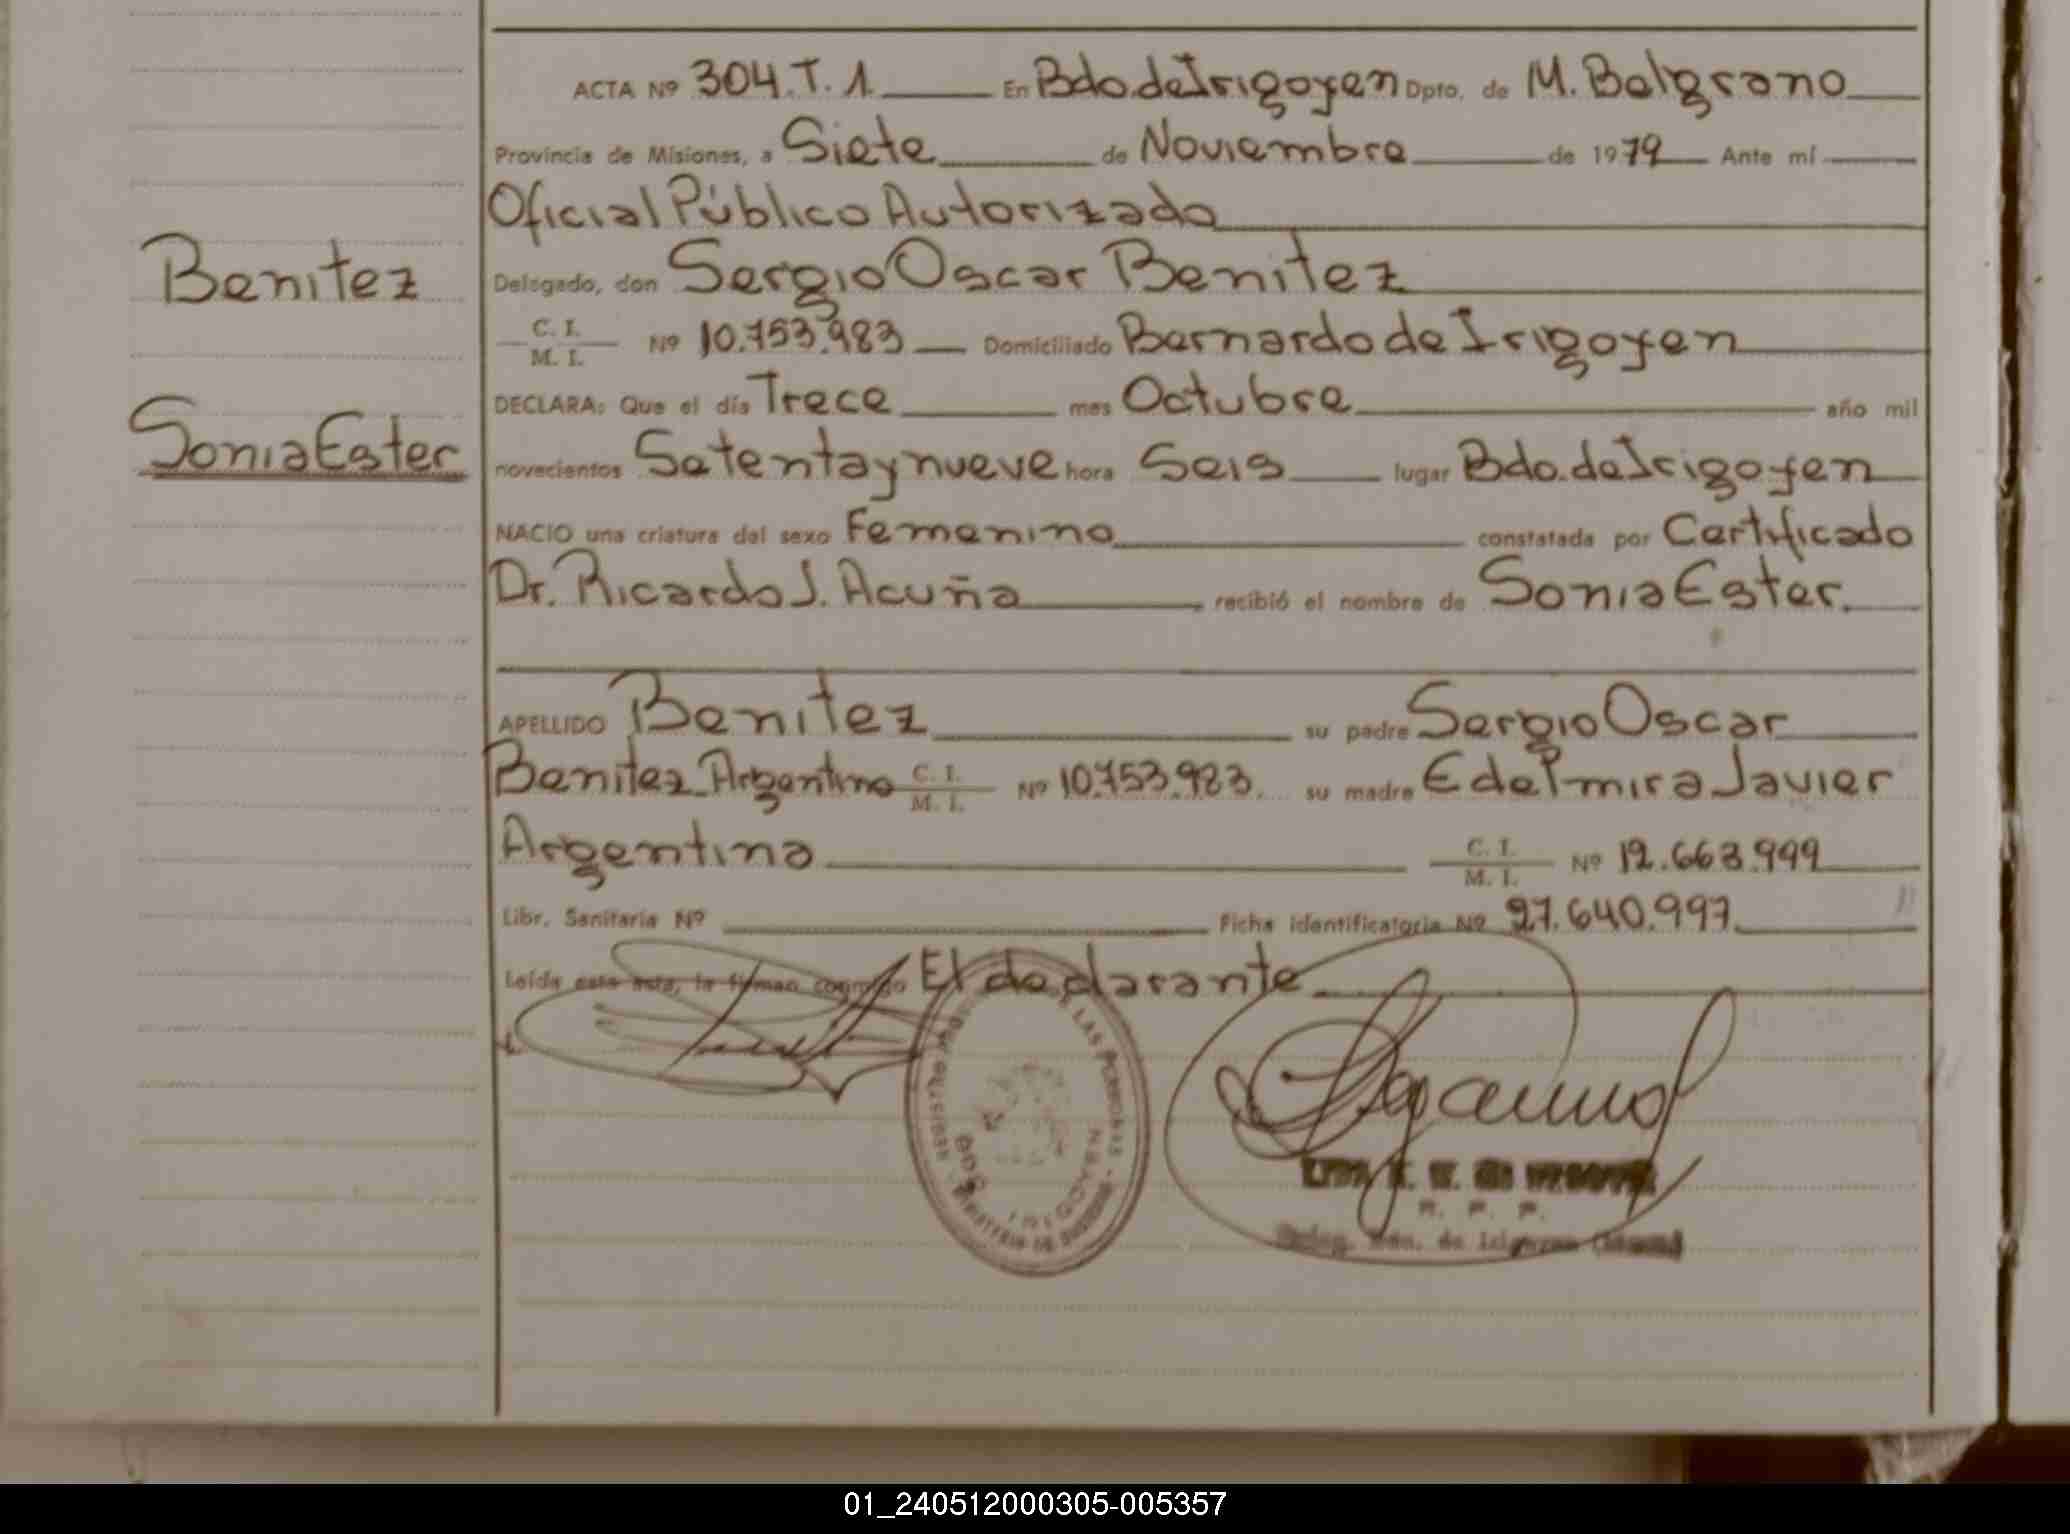 ACTA Nº 304.T.1. En Bdo.deIrigoyen Dpto. de M. Belgrano
Provincia de Misiones, a Siete de Noviembre de 1979 Ante mí
Oficial Público Autorizado
Benitez
Delegado, don Sergio Oscar Benitez
C. I.
M. I. Nº 10.753.983 Domiciliado Bernardo de Irigoyen
DECLARA: Que el día Trece mes Octubre año mil
Sonia Ester
novecientos Setenta y nueve hora Seis lugar Bdo.deIrigoyen
NACIO una criatura del sexo Femenino constatada por Certificado
Dr. Ricardo J. Acuña recibió el nombre de Sonia Ester.
APELLIDO Benitez su padre Sergio Oscar
Benitez Argentino C. I. M. I. Nº 10.753.983. su madre Edelmira Javier
Argentina C. I. M. I. Nº 12.663.999
Libr. Sanitaria Nº Ficha identificatoria Nº 27.640.997.
Leída esta acta, la firman conmigo El declarante
LAS PERSONAS
BDO. IRIGOYEN
R. P. P.
01_240512000305-005357